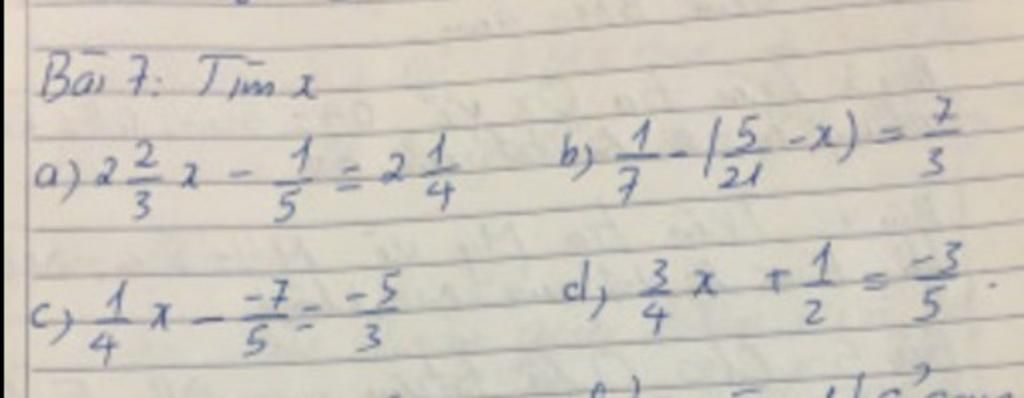 Bài 7: Tìm x
a) 2 2/3 x - 1/5 = 2 1/4 b) 1/7 - (5/21 - x) = 7/3
c) 1/4 x - -7/5 = -5/3 d) 3/4 x + 1/2 = -3/5 .